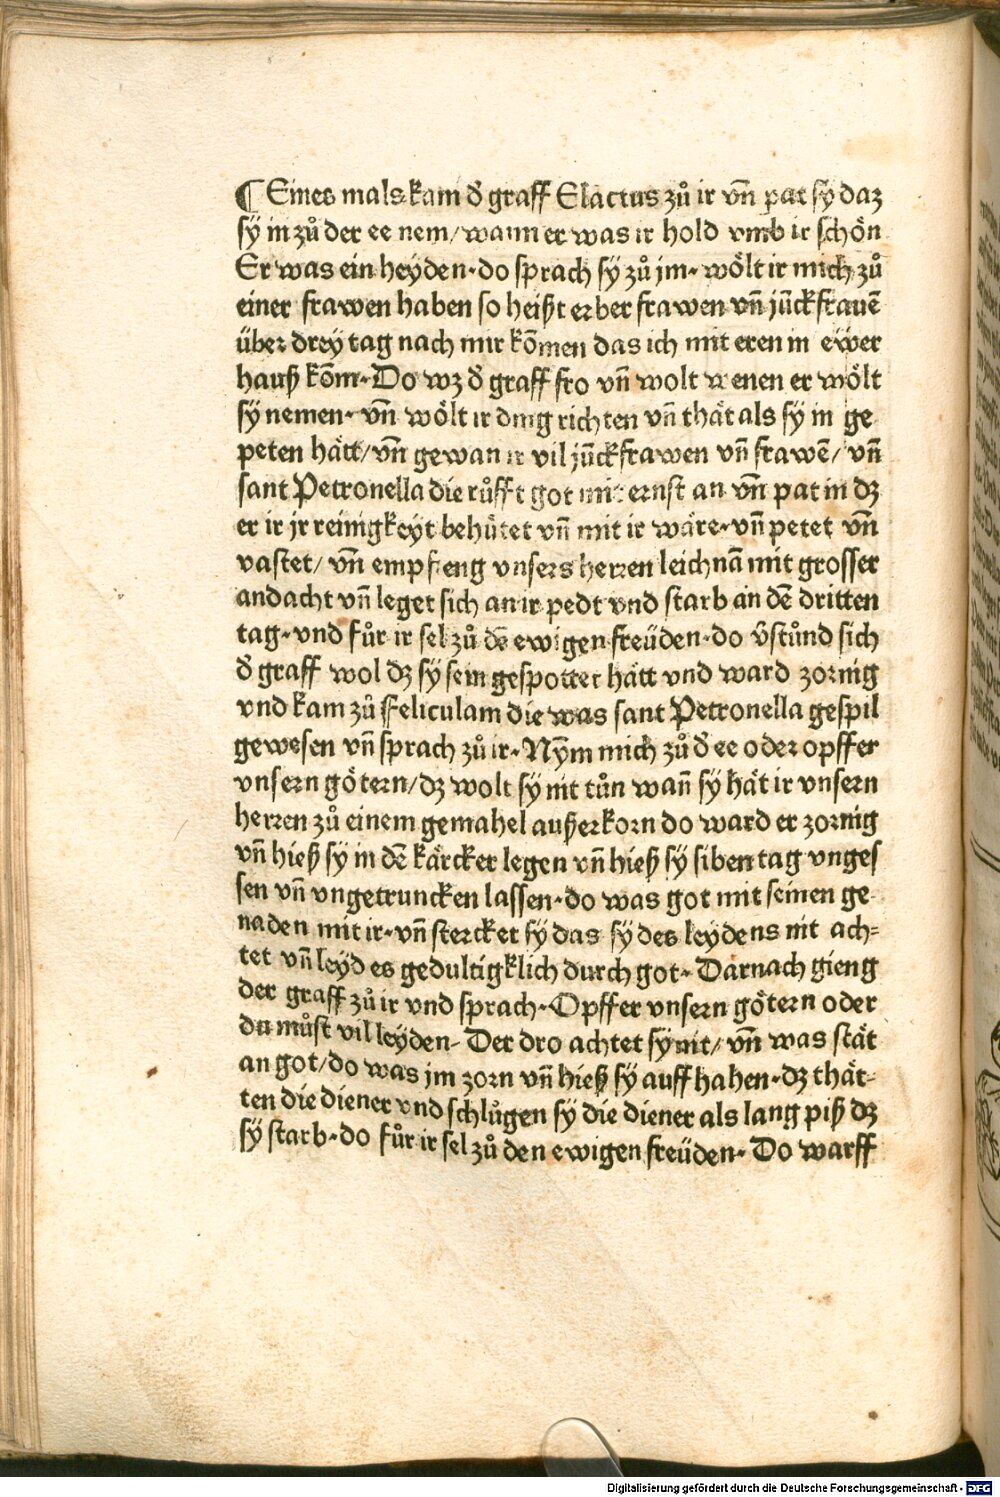 ¶ Eines mals kam d̕ graff Elactus zů ir vn̄ pat sy daz
sy in zů der ee nem/wann er was ir hold vmb ir schön
Er was ein heyden·do sprach sy zů jm·wölt ir mich zů
einer frawen haben so heißt erber frawen vn̄ jūckfrauē
über drey tag nach mir kōmen das ich mit eren in eẅer
hauß kōm·Do wz d̕ graff fro vn̄ wolt wenen er wölt
sy nemen·vn̄ wölt ir ding richten vn̄ thät als sy in ge
peten hätt/vn̄ gewan ir vil jūckfrawen vn̄ frawē/vn̄
sant Petronella die růfft got mit ernst an vn̄ pat in dz
er ir jr reinigkeyt behütet vn̄ mit ir wäre·vn̄ petet vn̄
vastet/vn̄ empfieng vnsers herren leichnā mit grosser
andacht vn̄ leget sich an ir pedt vnd starb an dē dritten
tag·vnd fůr ir sel zů dē ewigen freüden·do v̄stůnd sich
d̕ graff wol dz sy sein gespottet hätt vnd ward zornig
vnd kam zů Feliculam die was sant Petronella gespil
gewesen vn̄ sprach zů ir·Nȳm mich zů d̕ ee oder opffer
vnsern götern/dz wolt sy nit tůn wan̄ sy hät ir vnsern
herren zů einem gemahel außerkorn do ward er zornig
vn̄ hieß sy in dē kärcker legen vn̄ hieß sy siben tag vnges
sen vn̄ vngetruncken lassen·do was got mit seinen ge
naden mit ir·vn̄ stercket sy das sy des leydens nit ach⸗
tet vn̄ leyd es gedultigklich durch got·Darnach gieng
der graff zů ir vnd sprach·Opffer vnsern götern oder
du můst vil leyden·Der dro achtet sy nit/vn̄ was stät
an got/do was jm zorn vn̄ hieß sy auff hahen·dz thät⸗
ten die diener vnd schlůgen sy die diener als lang piß dz
sy starb·do fůr ir sel zů den ewigen freüden·Do warff
Digitalisierung gefördert durch die Deutsche Forschungsgemeinschaft - DFG